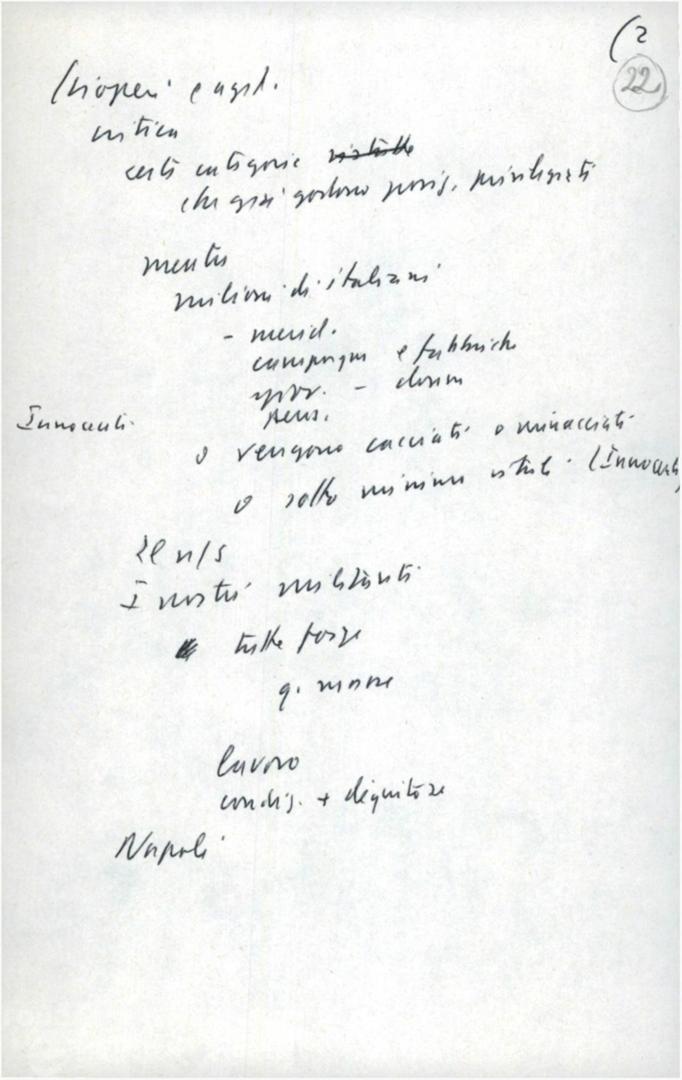 (2
22
Scioperi e agit.
critica
certe categorie
che già godono posiz. privilegiati
mentre
milioni di italiani
- merid.
campagna e fabbriche
giov. - donne
pens.
Innocenti
o vengono cacciati o minacciati
o sotto minimo vitale (Innocenti
Il n/s
I nostri militanti
tutte forze
q. masse
lavoro
condiz. + dignitose
Napoli